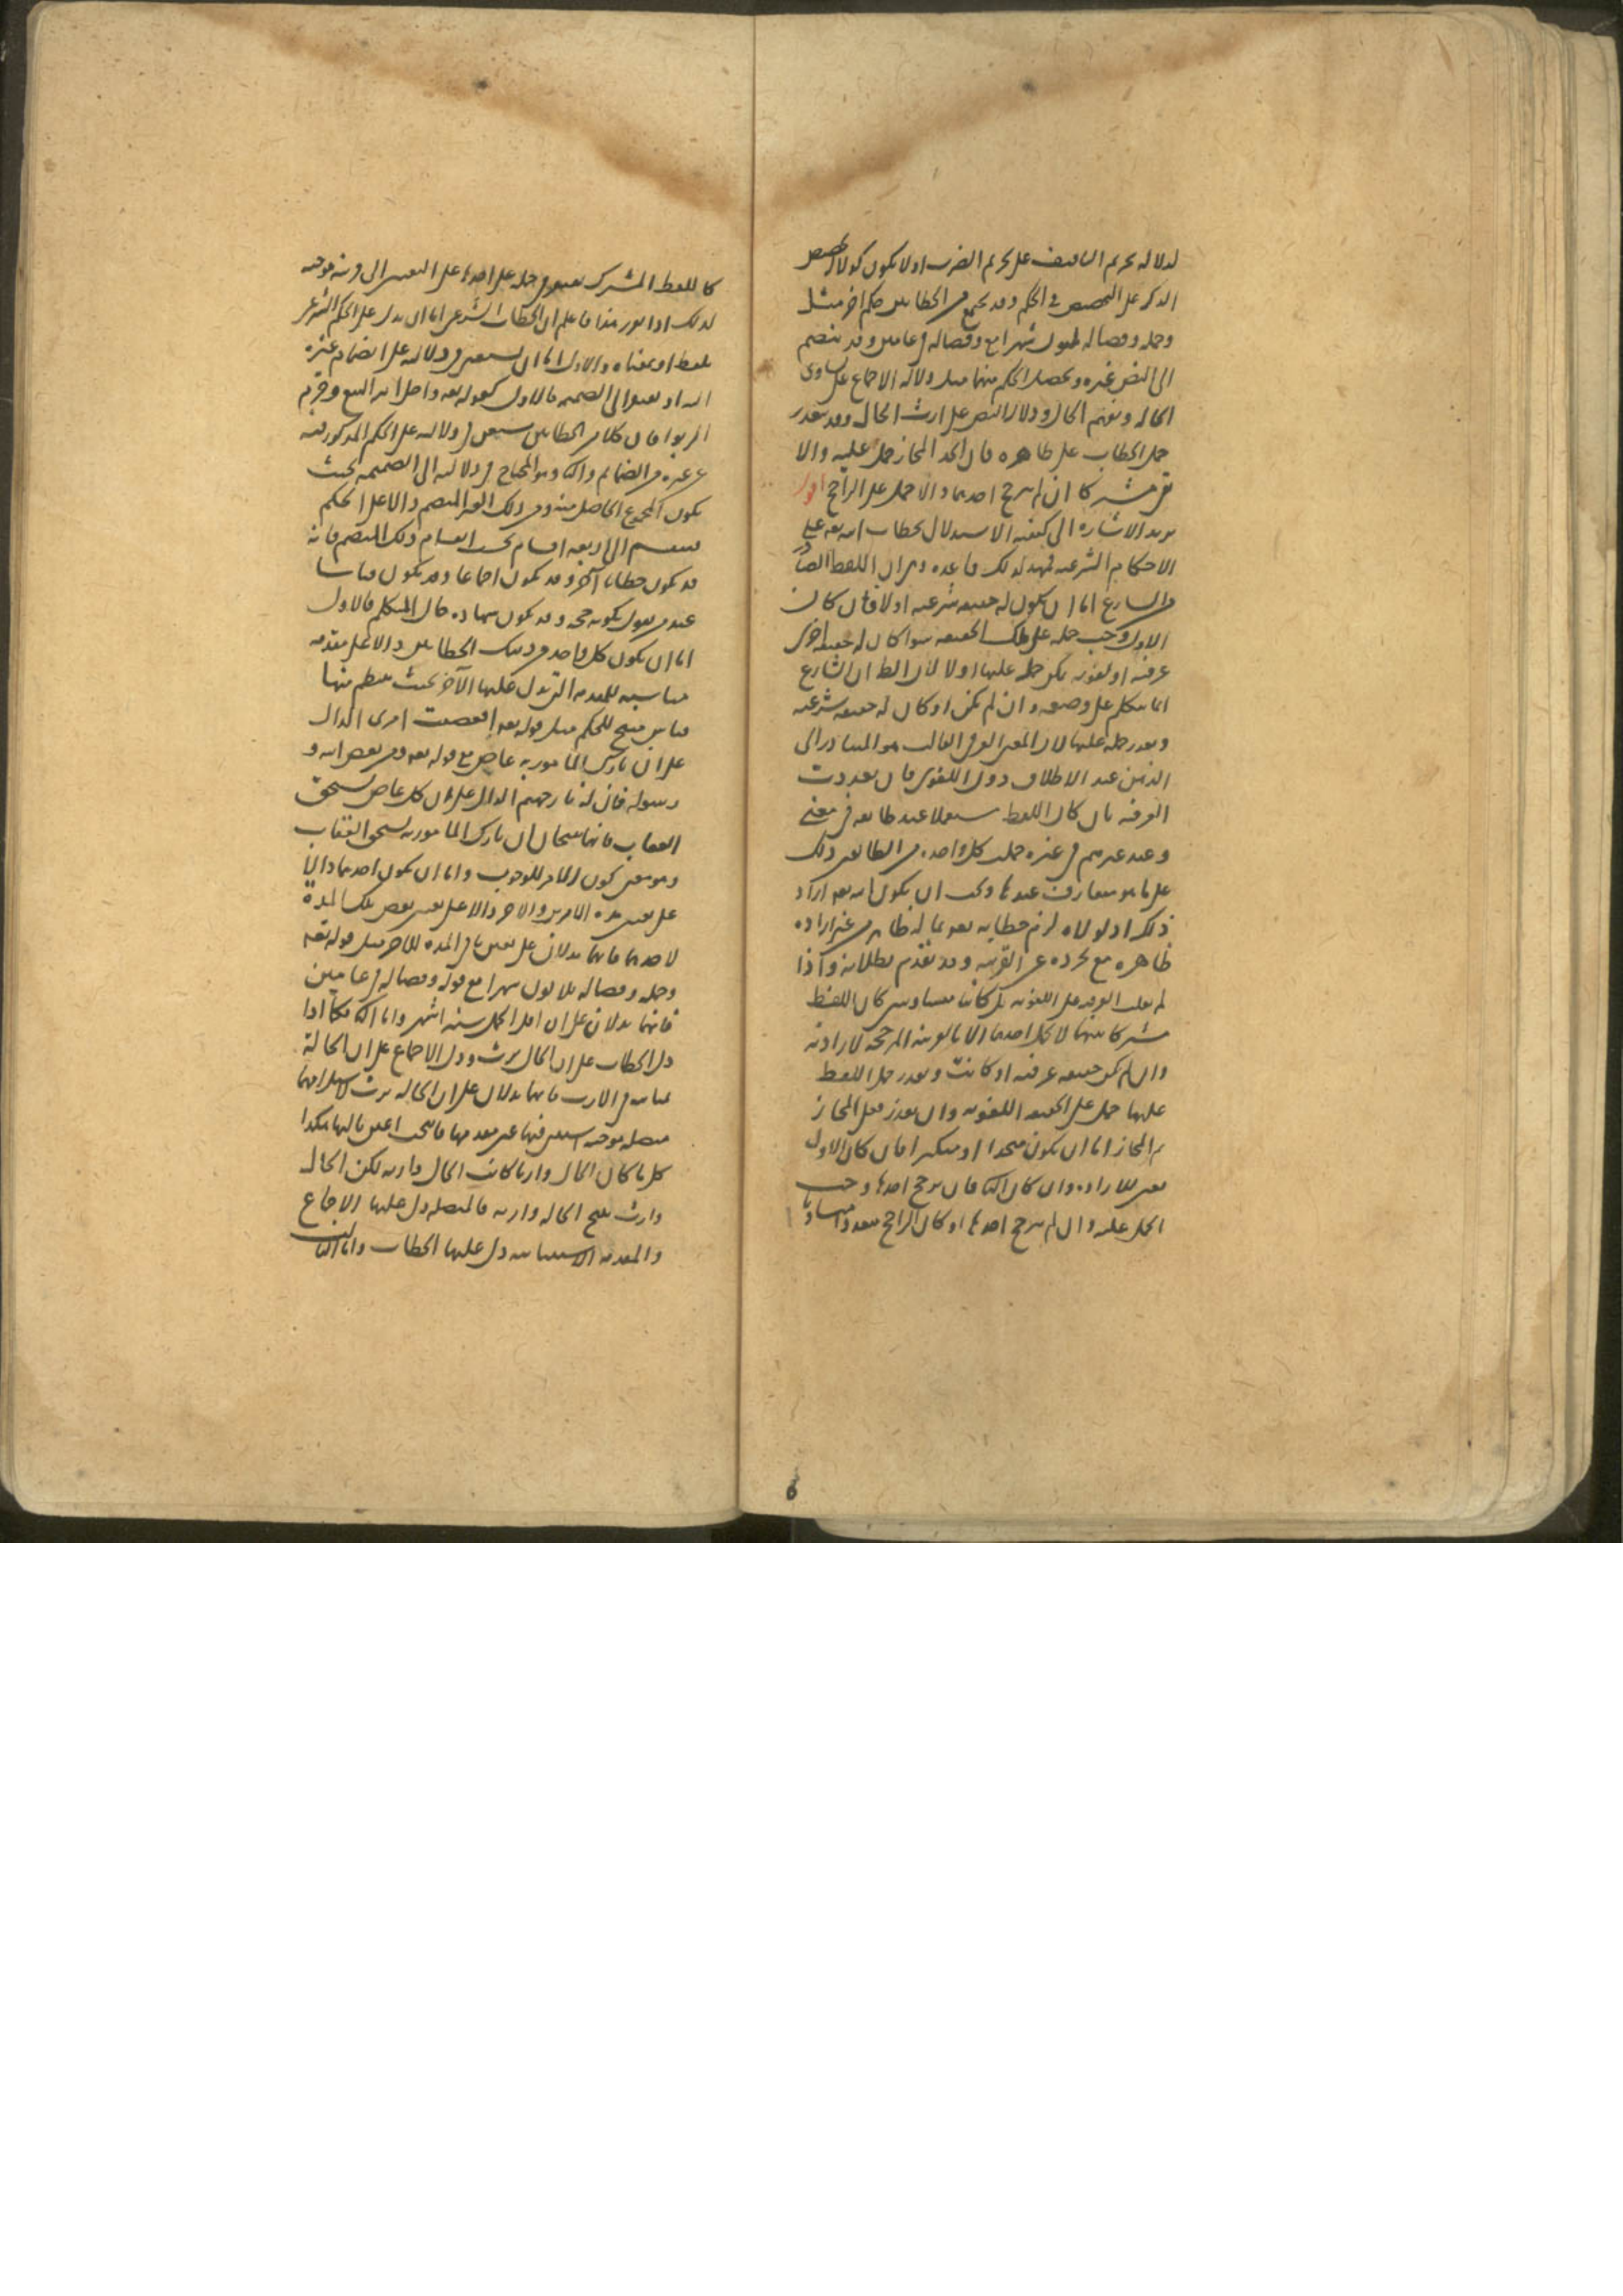 لدلالة تحريم التافيف على تحريم الضرب اولا يكون كدلالة تخصيص
الذكر على التخصيص في الحكم وقد يجتمع من الخطابين حكم اخر مثل
وحمله وفصاله ثلثون شهرا مع وفصاله في عامين وقد ينضم
الى النص غيره ويحصل الحكم منهما مثل دلالة الاجماع على تساوى
الخالة والخال ودلالة النص على ارث الخال وقد يتعذر
حمل الخطاب على ظاهره فان اتحد المجاز حمل عليه والا
بقى مشتركا ان لم يترجح احدهما والا حمل على الراجح اقول
يريد الاشارة الى كيفية الاستدلال بخطاب الله تعه على
الاحكام الشرعية فمهد لذلك قاعدة وهى ان اللفظ الصادر
من الشارع اما ان يكون له حقيقة شرعية اولا فان كان
الاول وجب حمله على تلك الحقيقة سوا كان له حقيقة اخرى
عرفية او لغوية يمكن حمله عليها اولا لان الظ ان الشارع
انما يتكلم على وضعه وان لم يكن او كان له حقيقة شرعية
وتعذر حمله عليها لان المعنى العرفى الغالب هو المتبادر الى
الذهن عند الاطلاق دون اللغوى فان تعددت
العرفية بان كان اللفظ مستعملا عند طائفة في معنى
وعند غيرهم في غيره حملت كل واحدة من الطائفتين ذلك
على ما هو متعارف عندها وجب ان يكون الله تعه اراد
ذلك اذ لولاه لزم خطابه تعه بما له ظاهر من غير ارادة
ظاهره مع تجرده عن القرينة وقد تقدم بطلانه واذا
لم تغلب العرفية على اللغوية بل كانتا متساويتين كان اللفظ
مشتركا بينهما لا يحمل احدهما الا بالقرينة المرجحة لارادته
وان لم يكن حقيقة عرفية او كانت وتعذر حمل اللفظ
عليها حمل على الحقيقة اللغوية وان تعذر فعلى المجاز
ثم المجاز اما ان يكون متحدا او متكثرا فان كان الاول
تعين للارادة وان كان الثا فان ترجح احدها وجب
الحمل عليه وان لم يترجح احدها او كان الراجح متعددا متساويا
كاللفظ المشترك يفتقر في حمله على احدها على التعيين الى قرينة موجبة
لذلك اذا تقرر هذا فاعلم ان الخطاب الشرعى اما ان يدل على الحكم الشرعى
بلفظه او بمعناه والاول اما ان يستغنى في دلالته على انضمام غيره
اليه او يفتقر الى الضميمة فالاول كقوله تعه واحل الله البيع وحرم
الربوا فان كلا من الخطابين مستغن في دلالته على الحكم المذكور فيه
عن غيره من الضمائم والثا وهو المحتاج في دلالته الى الضميمة بحيث
يكون المجموع الحاصل منه ومن ذلك الغير المنضم دالا على الحكم
فينقسم الى اربعة اقسام بحسب انقسام ذلك المنضم فانه
قد يكون خطابا آخر وقد يكون اجماعا وقد يكون قياسا
عند من يقول بكونه حجة وقد يكون شهادة حال المتكلم فالاول
اما ان يكون كل واحد من ذينك الخطابين دالا على مقدمة
مناسبة للمقدمة التى يدل عليها الآخر بحيث ينتظم منهما
قياس منتج للحكم مثل قوله تعه افعصيت امرى الدال
على ان تارك المامور به عاص مع قوله تعه ومن يعص الله و
رسوله فان له نار جهنم الدال على ان كل عاص يستحق
العقاب فانهما ينتجان ان تارك المامور به يستحق العقاب
وهو معنى كون الامر للوجوب واما ان يكون احدهما دالا
على تعيين مدة الامرين والاخر دالا على تعيين بعض تلك المدة
لاحدهما فانهما يدلان على تعيين باقى المدة للاخر مثل قوله تعه
وحمله وفصاله ثلاثون شهرا مع قوله وفصاله في عامين
فانهما يدلان على ان اقل الحمل ستة اشهر واما الثا فكما اذا
دل الخطاب على ان الخال يرث ودل الاجماع على ان الخالة
بمثابته في الارث فانهما يدلان على ان الخالة ترث لاستلزامهما
متصلة موجبة استثنى فيها عين مقدمها فانتجت عين تاليها هكذا
كل ما كان الخال وارثا كانت الخالة وارثة لكن الخال
وارث ينتج الخالة وارثة فالمتصلة دل عليها الاجماع
والمقدمة الاستثنائية دل عليها الخطاب واما الثالث